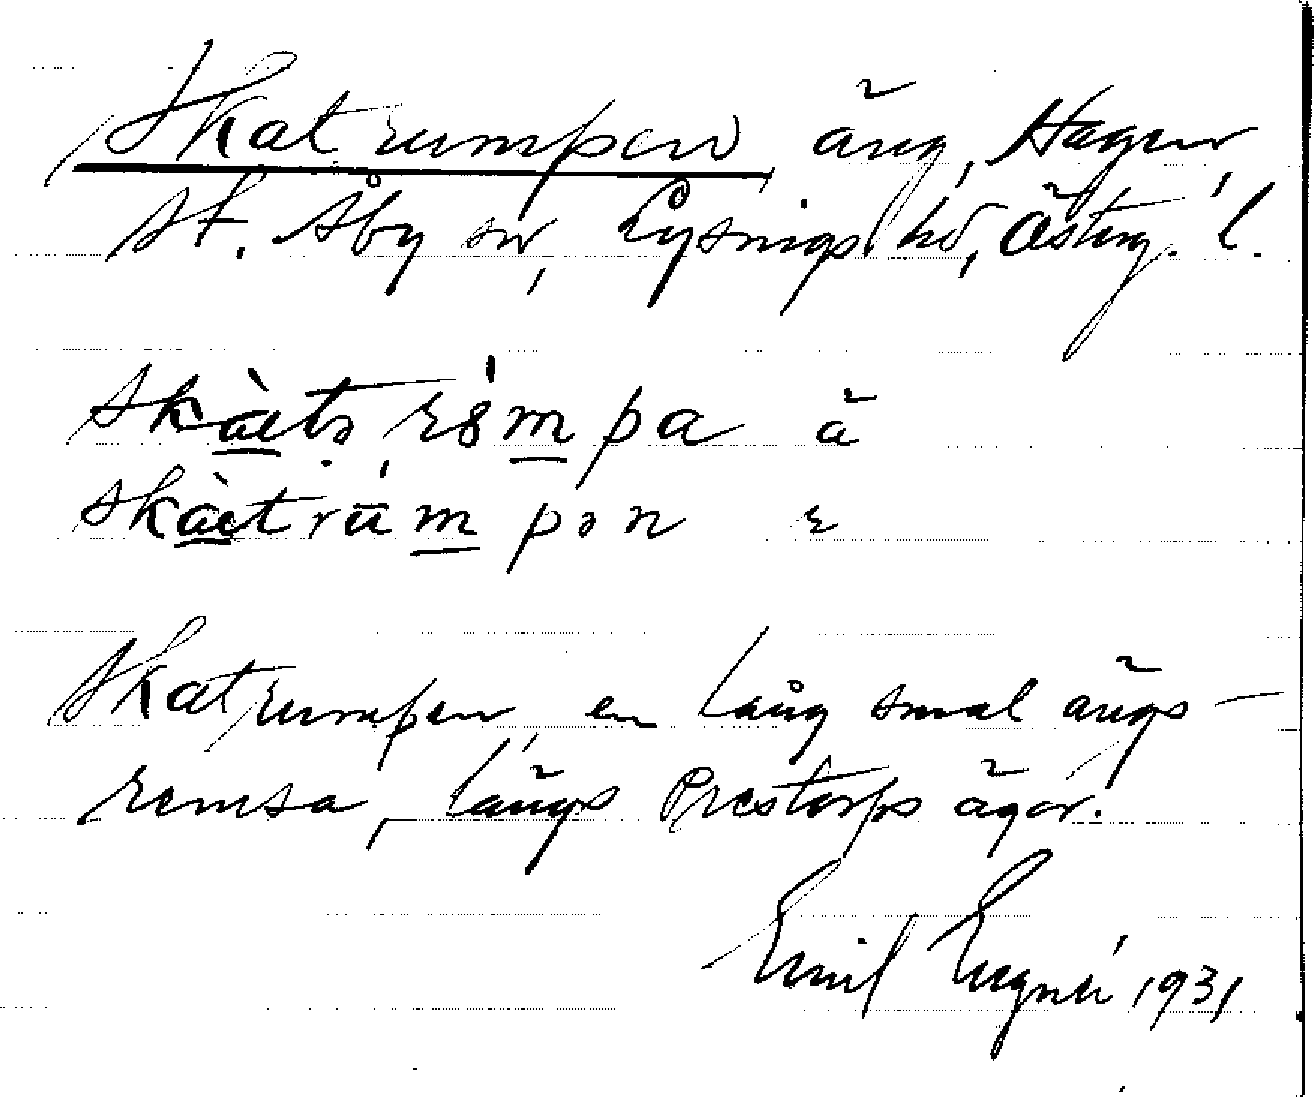 Skatrumpen, äng, Hagen
St. Åby sn, Lysings hd, Österg. l.
skàtrómpa ä
skàtrúmpən
Skatrumpen en lång smal ängs-
remsa, längs Prestorps ägor.
Emil 1931